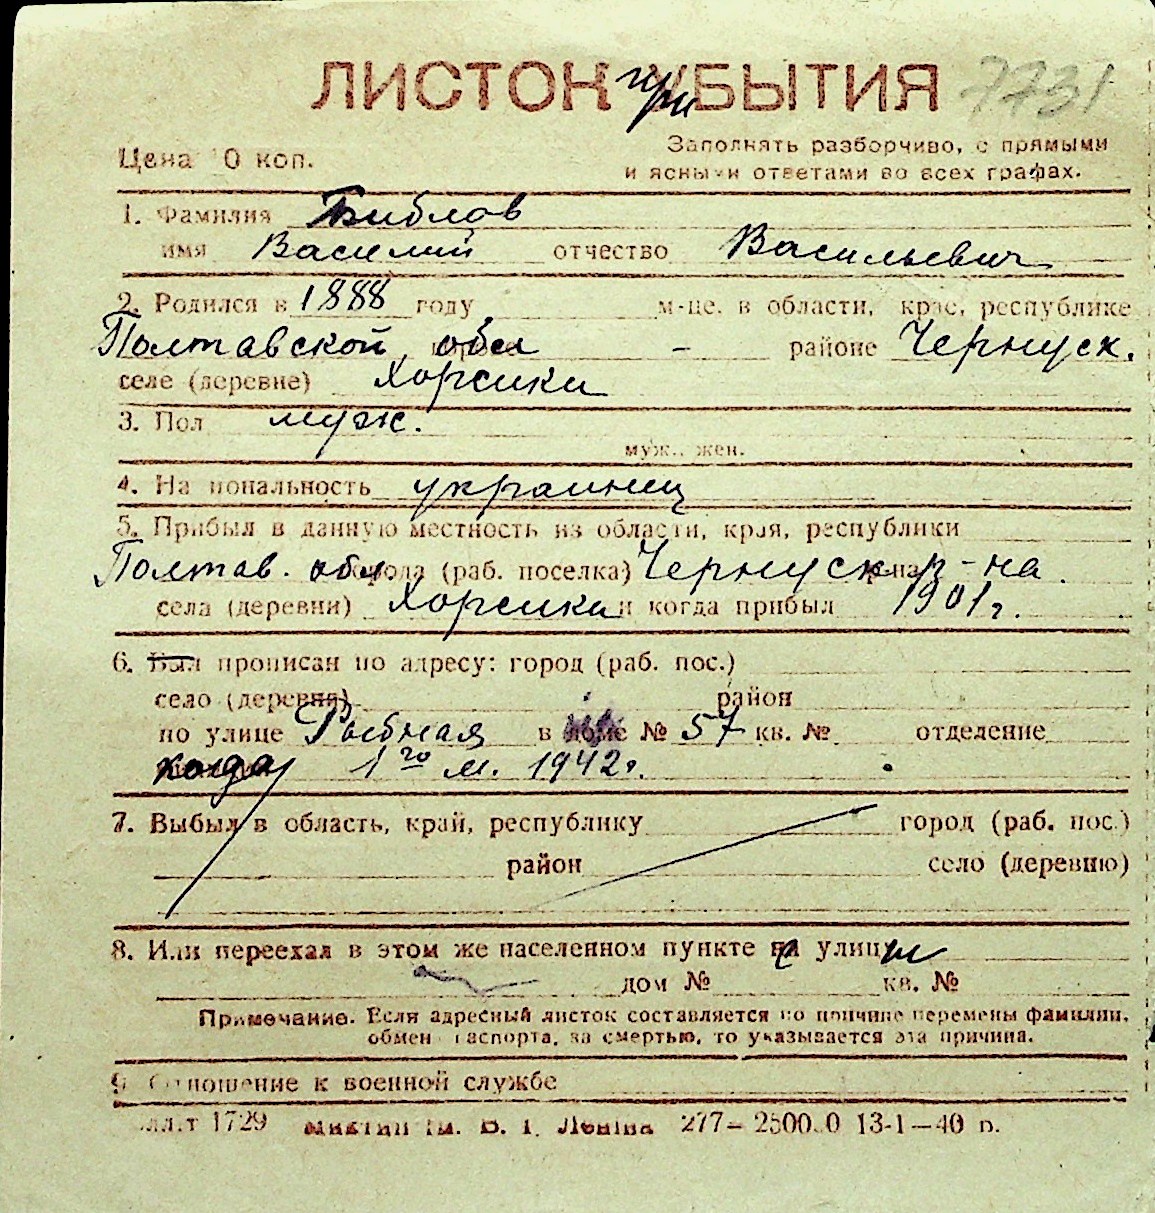 ЛИСТОК при УБЫТИЯ 7731
Цена 10 коп.
Заполнять разборчиво, с прямыми
и ясными ответами во всех графах.
1. Фамилия Библов
имя Василий отчество Васильевич
2. Родился в 1888 году м-це, в области, крае, республике
Полтавской обл - районе Чернуск.
селе (деревне) Хорсики
3. Пол муж.
муж., жен.
4. Национальность украинец
5. Прибыл в данную местность из области, края, республики
Полтав. обл. города (раб. поселка) Чернуск р-на.
села (деревни) Хорсики и когда прибыл 1901 г.
6. Был прописан по адресу: город (раб. пос.)
село (деревня) район
по улице Рыбная в доме № 57 кв. № отделение
когда 1го м. 1942 г.
7. Выбыл в область, край, республику город (раб. пос.)
район село (деревню)
8. Или переехал в этом же населенном пункте с улицы
дом № кв. №
Примечание. Если адресный листок составляется по причине перемены фамилии,
обмен паспорта, за смертью, то указывается эта причина.
9. Отношение к военной службе
1729 ім. В. І. Леніна 277—2500.0 13-1—40 р.